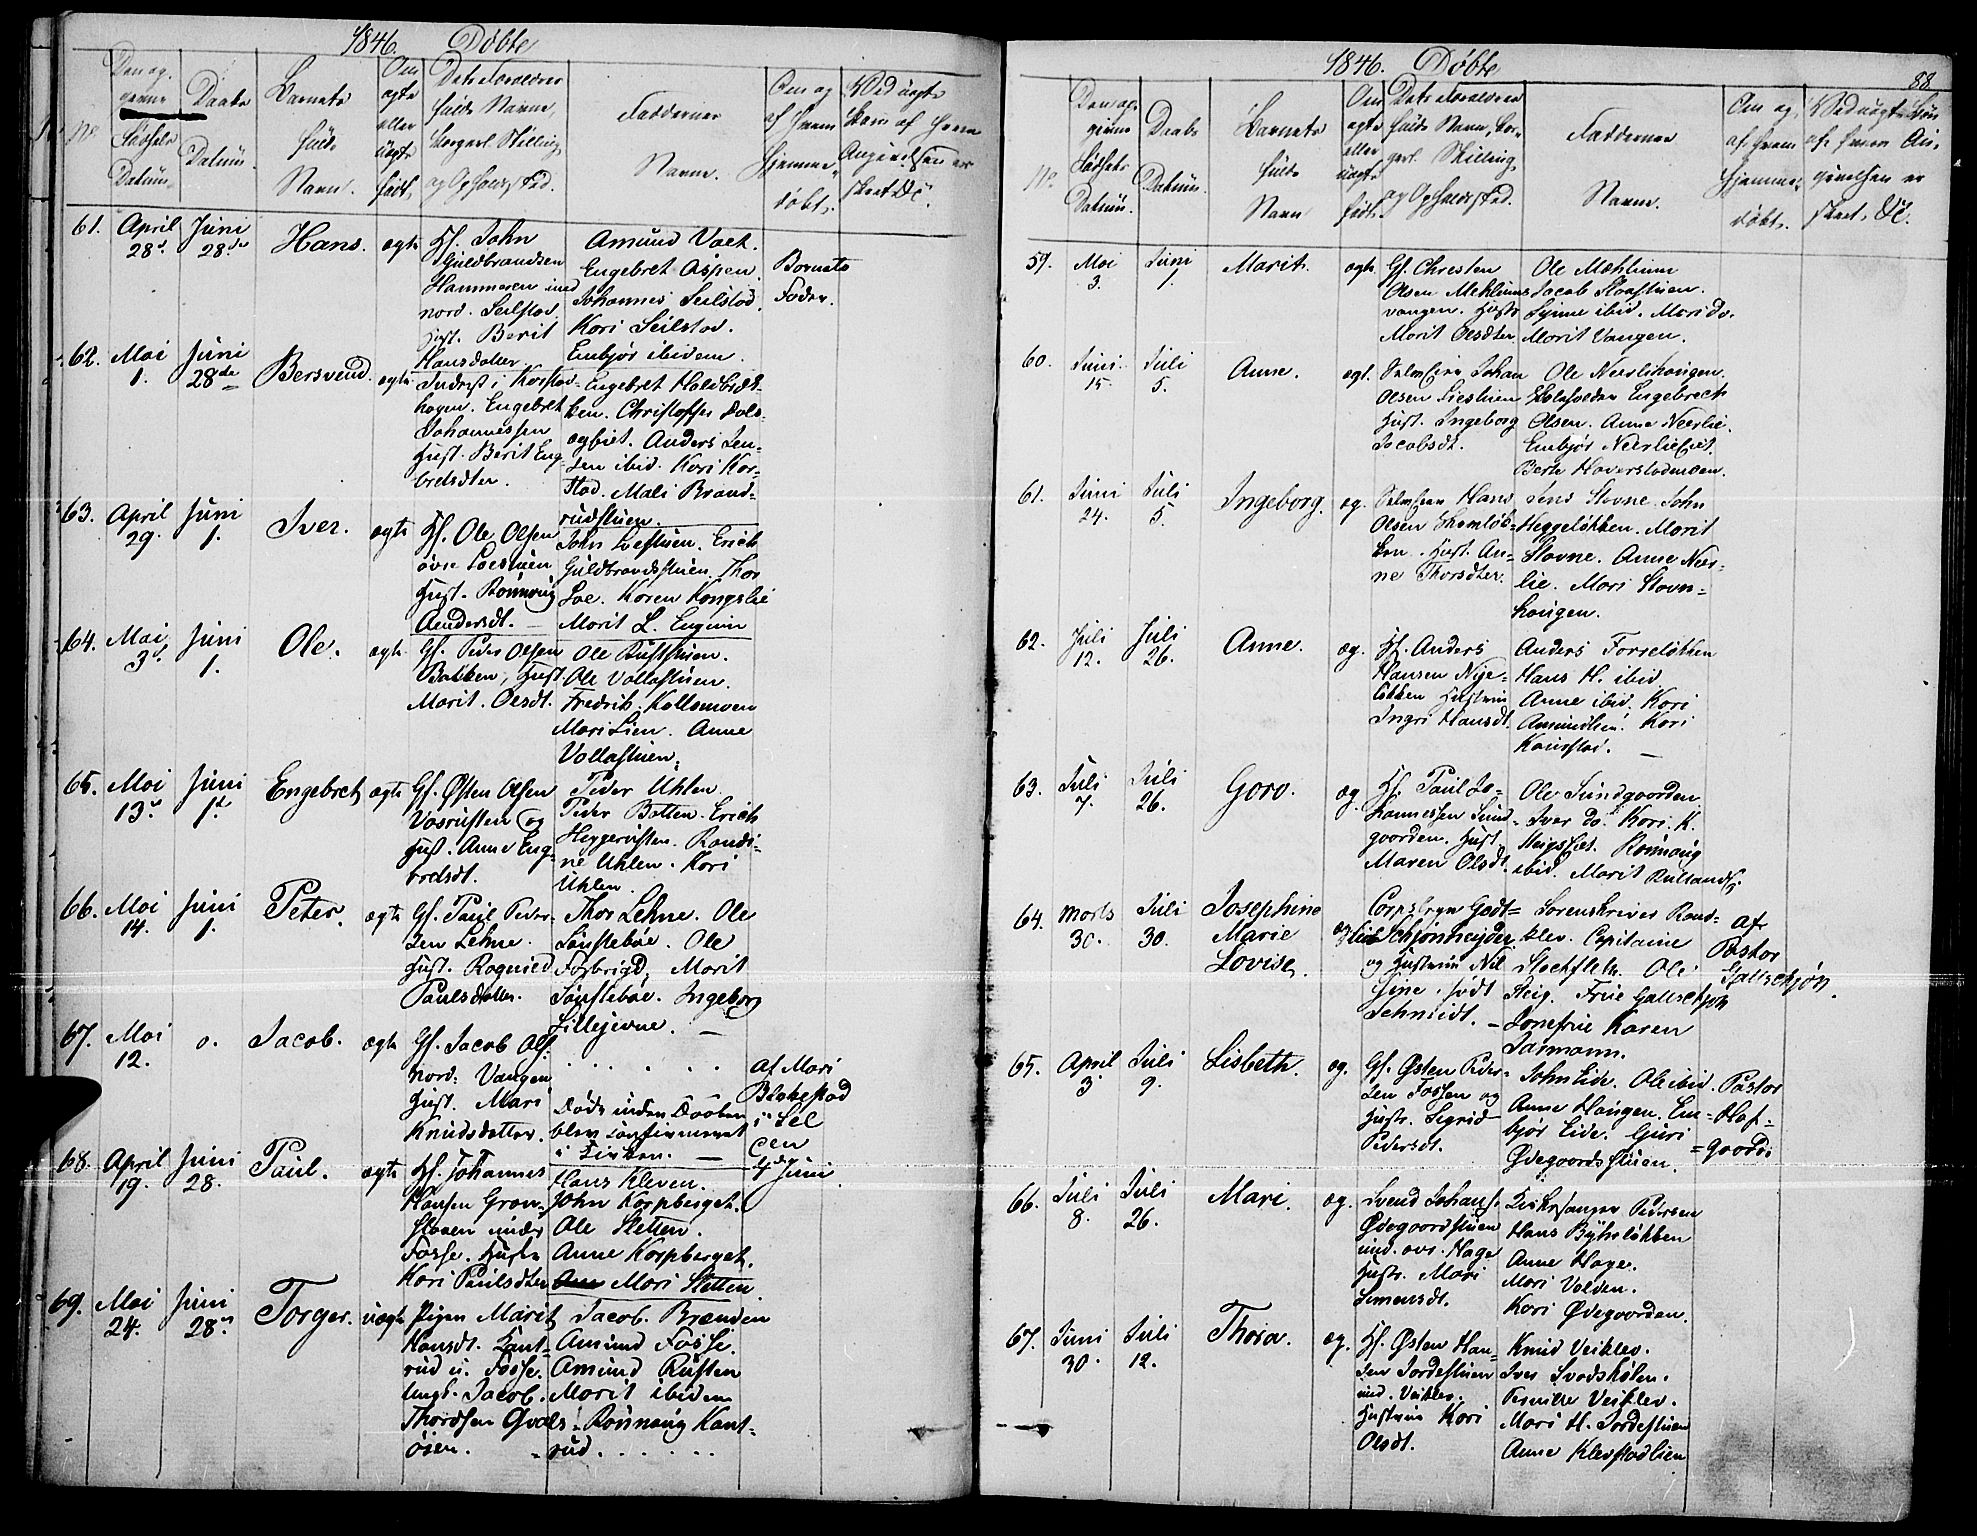 1846. Døbte
No
Den op-
givne
Fødsels
Datum
Daabs
Datum.
Barnets
fulde
Navn.
Om
ægte
eller
uægte
født.
Dets Forældres
fulde Navne,
og Opholdssted.
Faddernes
Navne.
Om og
af hvem
hjemme-
døbt.
61. April 28d Juni 28de Hans. ægte
Gf. John
Guldbrandsen
Hammeren und
nord. Seilstad
Hust. Berit
Hansdatter
Amund Vaet.
Engebret Aspen.
Johannes Seilstad.
Kari Seilstad.
Embjør ibidem.
Barnets
Fader.
62. Mai 1. Juni 28de Bersvend. ægte
Inderst i Korstad-
hagen. Engebret
Johannessen
Hust. Berit Eng-
bretsdter.
Engebret Haldbræk-
ken. Christoffer Dals-
Anders Jen-
sen ibid. Kari Kor-
stad. Mali Brand-
rudstuen.
63. April 29. Juni 1. Iver. ægte
Hf. Ole Olsen
øvre Loestuen
Hust. Rønnoug
Andersdt.
John Loestuen. Erich
Guldbrandsstuen. Thor
Loe. Karen Kongslie
Marit L. Engum
64. Mai 3d Juni 1. Ole. ægte
Gf. Peder Olsen
Bakken, Hust.
Marit Olesdt.
Ole Ruststuen.
Ole Vollastuen.
Fredrik Kollomoen
Mari Lien. Anne
Vollastuen.
65. Mai 13d Juni 1d Engebret, ægte
Gf. Østen Olsen
Vasrusten og
Hust. Anne Eng-
bretsdt.
Peder Uhlen.
Peder Botten. Erich
Heggerusten. Randi-
ne Uhlen. Kari
Uhlen.
66. Mai 14. Juni 1. Peter. ægte
Gf. Paul Peder-
sen Lehne.
Hust. Ragnild
Paulsdatter.
Thor Lehne. Ole
Sønstebøe. Ole
Forbrigd, Marit
Sønstebøe. Ingeborg
Lillejevne.
67. Mai 12. o. Jacob. ægte
Gf. Jacob Ols.
nord: Vangen
Hust. Mari
Knudsdatter.
. . . . . .
Døde inden Daaben
blev confirmeret
i Kirken.
af Mari
Blekestad
i Sel
den
4de Juni
68. April 19. Juni 28. Paul. ægte
Hf. Johannes
Hansen Gron-
stuen under
Fosse. Hustr.
Kari Paulsdter
Hans Kleven.
John Korpberget.
Ole Sletten.
Anne Korpberget.
Mari Sletten.
69. Mai 24. Juni 28de Torger. uægte
Pigen Marit
Hansdt. Kant-
rud u. Fosse.
Ungk. Jacob.
Thordsen Qvals-
øien.
Jacob. Brænden
Amund Fosse.
Amund Rusten
Marit ibidem
Rønnoug Kant-
rud. . . . . .
1846. Døbte
88
No
Den op-
givne
Fødsels
Datum.
Daabs
Datum.
Barnets
fulde
Navn
Om
ægte
eller
uægte
født.
Dets Forældres
fulde Navn, Bor-
gerl. Stilling,
og Opholdssted.
Faddernes
Navne.
Om og
af hvem
hjemme-
døbt.
59. Mai 3. Juni 1. Marit. ægte
Gf. Christen
Olsen Mehlums
vangen. Hustr
Marit Olesdter
Ole Mæhlum
Jacob Slaastuen.
Synne ibid. Mari do.
Marit Vangen.
60. Juni 15. Juli 5. Anne. ægt.
Johan
Olsen Liestuen
Hust. Ingeborg
Jacobsdt.
Ole Neerliehaugen.
Skoleholder Engebreth
Olsen. Anne Neerlie.
Embjør Neerlieeiet.
Berte Haverstadenden.
61. Juni 24. Juli 5. Ingeborg. æg.
Hans
Olsen Skomløk-
ken. Hust. An-
ne Thorsdter.
Jens Stovne. John
Heggeløkken. Marit
Stovne. Anne Neer-
lie. Mari Stovn-
haugen.
62. Juli 12. Juli 26. Anne. æg.
Hf. Anders
Hansen Nye-
løkken Hustrue
Ingri Hansdt.
Anders Forreløkken
Hans H. ibid
Anne ibid. Kari
Amundlien. Kari
Kaurstad.
63. Juli 7. Juli 26. Goro. æg.
Hf. Paul Jo-
hannessen Sund-
gaarden. Hust.
Maren Olsdt.
Ole Sundgaarden
Iver do. Kari K.
Steigseiet. Rønnaug
ibid. Marit
64. Marts 30. Juli 30. Josephine
Marie
Lovise.
Schjønheyder.
og Hustrue Nil
sine født
Schmidt.
Sorenskriver Rand-
klev. Capitaine
Stockfleth. Ole
Steig. Frue Galtschjøt
Jomfrue Karen
Jarmann.
af
Pastor
Galtschjøt.
65. April 3 Juli 9. Lisbeth. æg.
Gf. Østen Peder-
sen Fossen og
Hustr. Sigrid
Pedersdt.
John Eide. Ole ibid.
Anne Haugen. Em-
bjør Eide. Guri
Ødegaardsstuen.
Pastor
Hof-
gaard.
66. Juli 8. Juli 26. Mari. æg.
Svend Johans.
Ødegaardstuen
und. øvr. Hage
Hustr. Mari
Simensdt.
Kirkesanger Pedersen
Hans Byhrløkken
Anne Hage.
Mari Volden.
Kari Ødegaarden.
67. Juni 30. Juli 12. Thora. æg.
Hf. Østen Han-
sen Jordestuen
und. Veiklev.
Hustrue Kari
Olsdt.
Knud Veiklev.
Iver Svadskølen.
Pernille Veiklev.
Mari H. Jordestuen
Anne Klevstadlien